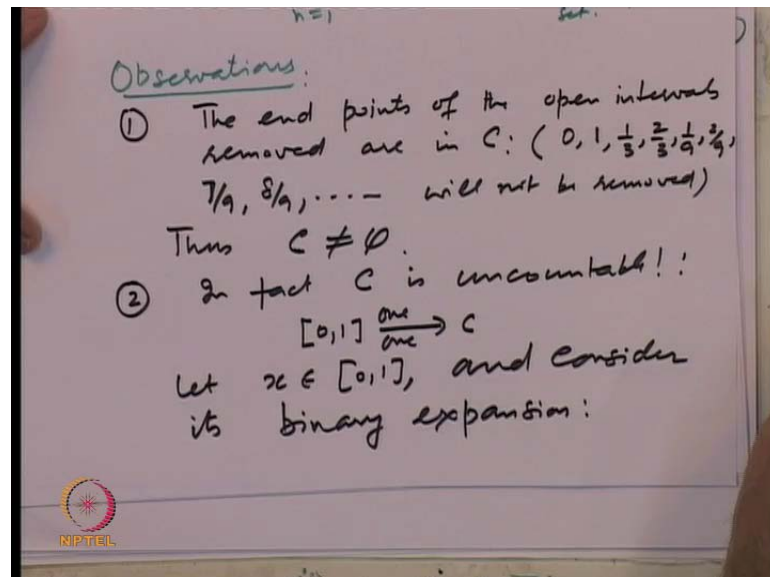 n=1 set.
Observations:
① The end points of the open intervals
removed are in C: ( 0, 1, 1/3, 2/3, 1/9, 2/9,
7/9, 8/9, .... will not be removed)
Thus C ≠ φ.
② In fact C is uncountable!:
[0,1] one/one → C
Let x ∈ [0,1], and consider
its binary expansion:
NPTEL